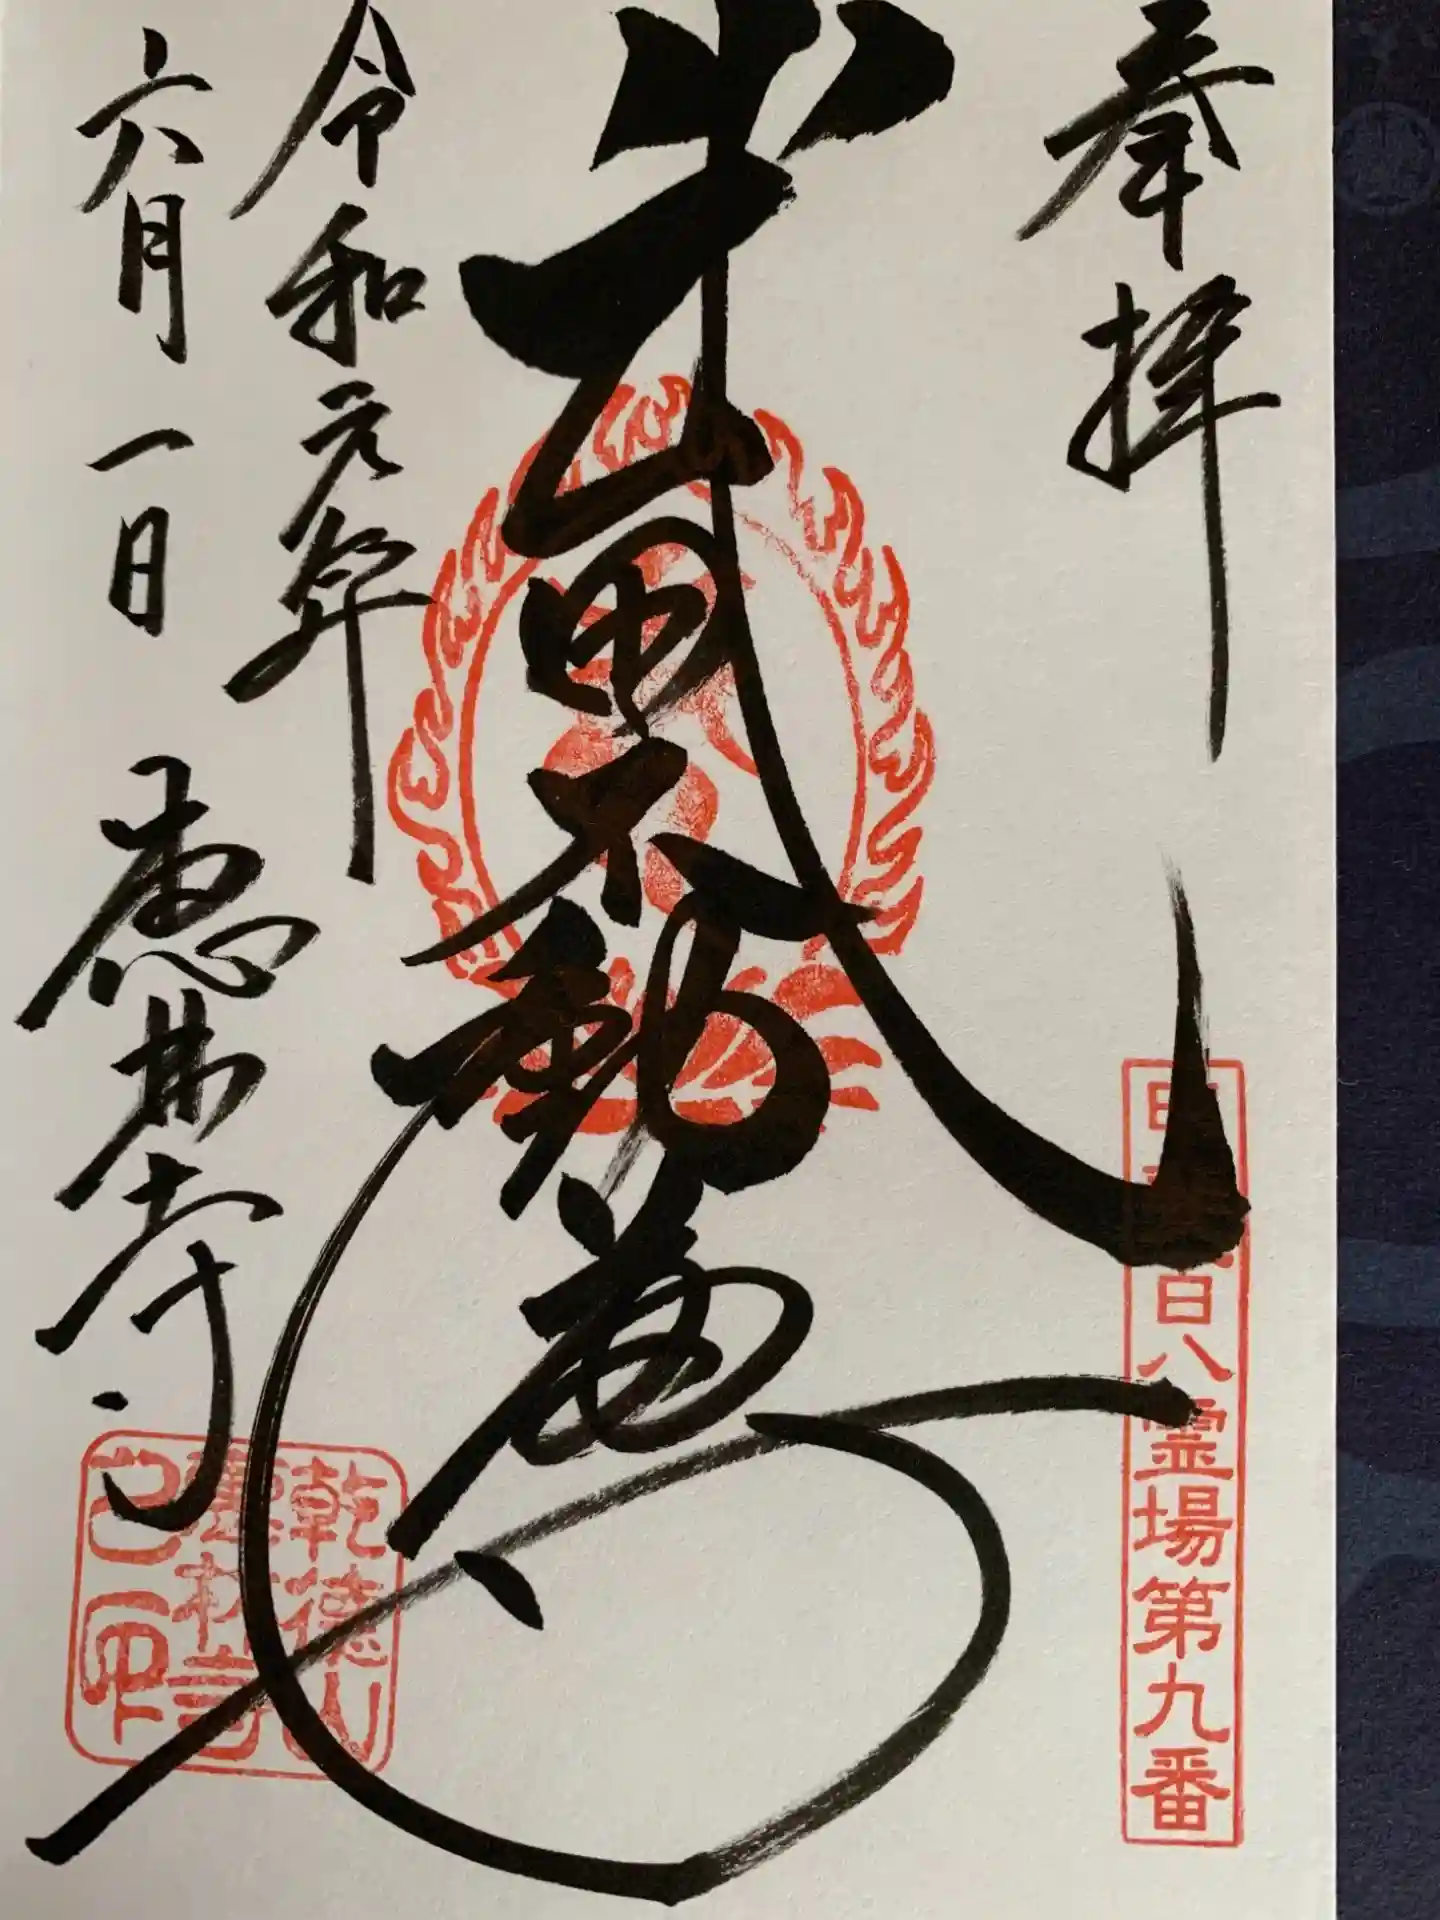 奉拝
百八霊場第九番
武田不動尊
令和元年
六月一日
恵林寺
乾徳山
恵林寺
之印